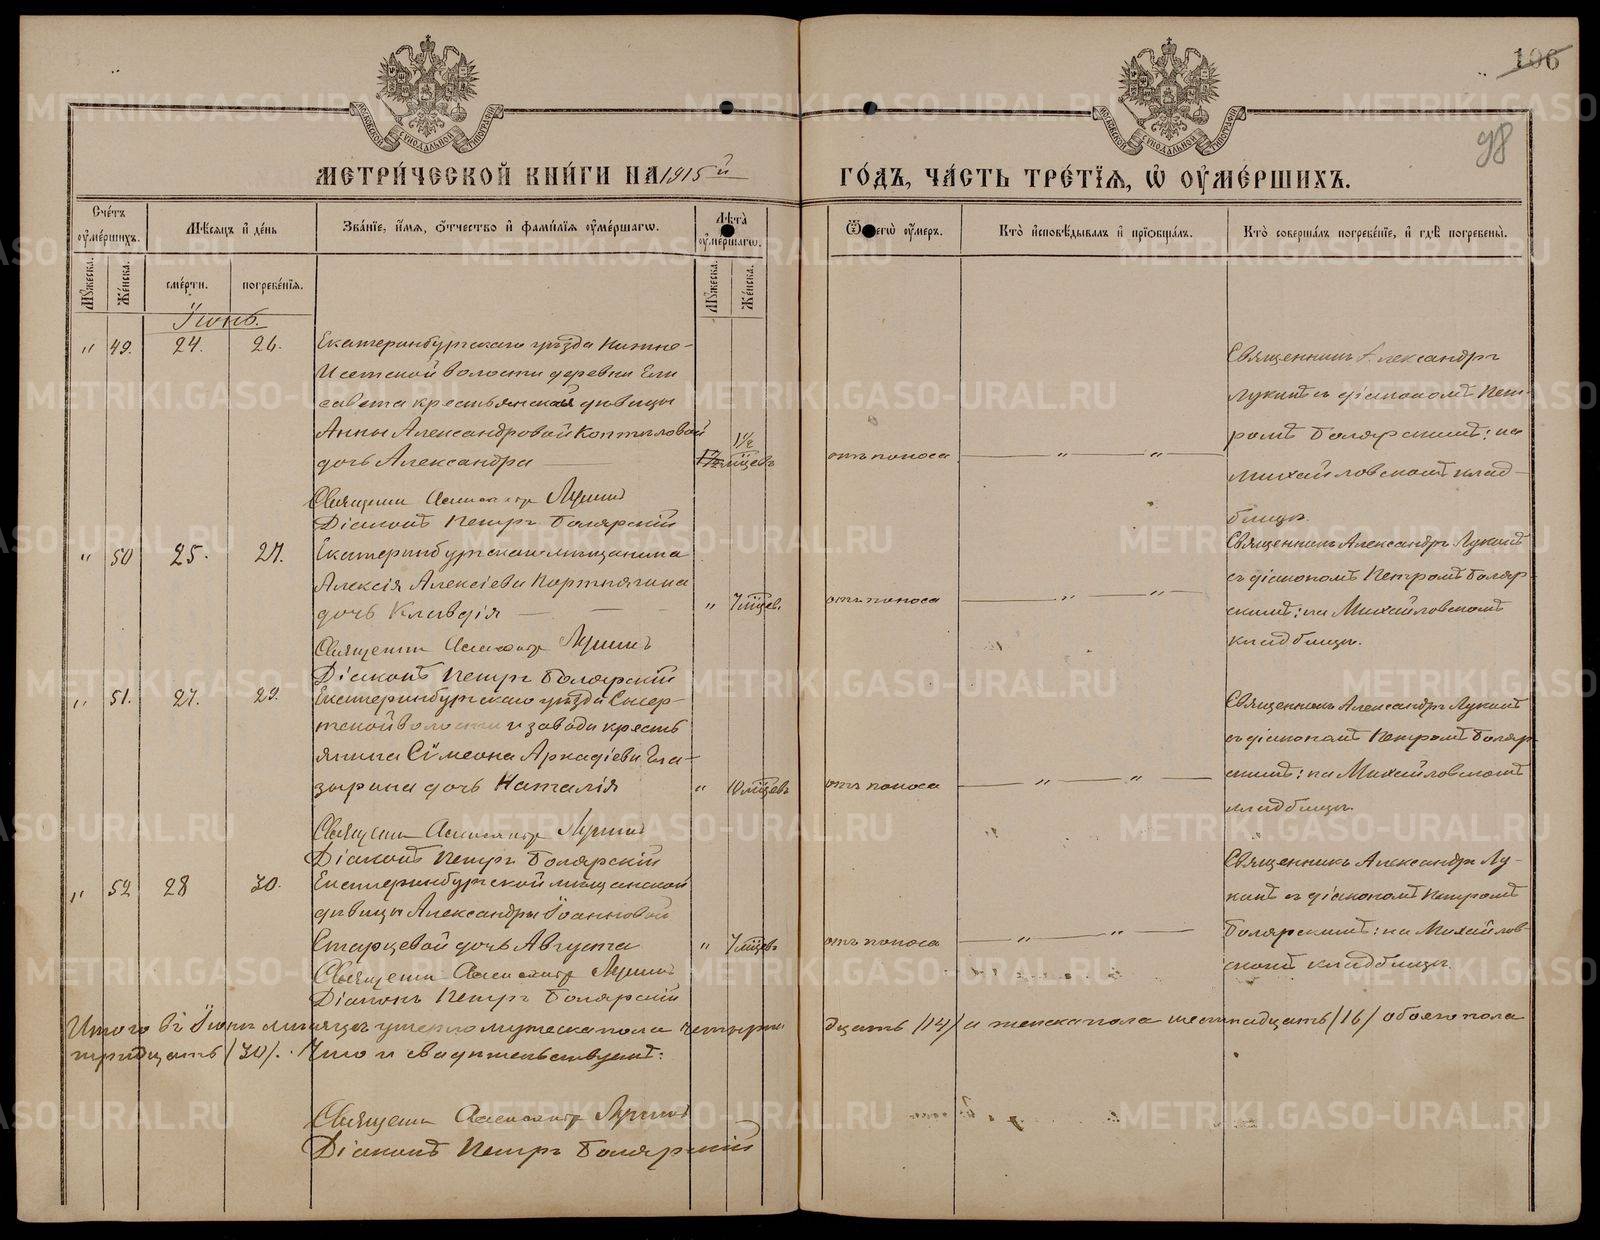 106
98
МЕТРИ́ЧЕСКОЙ КНИ́ГИ НА 1915й
ГО́ДЪ, ЧА́СТЬ ТРЕ́ТЇЯ, Ѡ ОУ҆МЕ́РШИХЪ.
Сче́тъ оу҆ме́ршихъ.
Мѣсяцъ и҆ де́нь
Зва́нїе, и҆́мя, ѻ҆́тчество и҆ фами́лїя оу҆ме́ршагѡ.
Лѣта̀ оу҆ме́ршагѡ.
Ѿ чегѡ̀ оу҆́меръ.
Кто̀ и҆сповѣ́дывалъ и҆ прїѻбща́лъ.
Кто̀ соверша́лъ погребе́нїе, и҆ гдѣ̀ погребены̀.
Мꙋ́жеска.
Же́нска.
сме́рти.
погребе́нїя.
Мꙋ́жеска.
Же́нска.
Іюнь.
" 49. 24. 26.
Екатеринбургскаго уѣзда Нижне-
Исетской волости деревни Ели
савета крестьянской дѣвицы
Анны Александровой Коптяловой
дочь Александра
1½ мѣсяцевъ
отъ поноса
" "
Священникъ Александръ
Лукинъ съ діакономъ Пет
ромъ Болярскимъ: на
Михайловскомъ клад-
бищѣ.
Священникъ Александръ Лукинъ
Діаконъ Петръ Болярскій
" 50 25. 27.
Екатеринбургскаго мѣщанина
Алексія Алексіева Портнягина
дочь Клавдія
" 7 мѣсяцев.
отъ поноса
" "
Священникъ Александръ Лукинъ
съ діакономъ Петромъ Боляр-
скимъ: на Михайловскомъ
кладбищѣ.
Священникъ Александръ Лукинъ
Діаконъ Петръ Болярскій
" 51. 27. 29.
Екатеринбургскаго уѣзда Сысер-
тской волости и завода кресть
янина Сімеона Аркадіева Гла-
зырина дочь Наталія
" 10 мѣсяцевъ
отъ поноса
" "
Священникъ Александръ Лукинъ
съ діакономъ Петромъ Боляр-
скимъ: на Михайловскомъ
кладбищѣ.
Священникъ Александръ Лукинъ
Діаконъ Петръ Болярскій
" 52 28 30.
Екатеринбургской мѣщанской
дѣвицы Александры Іоанновой
Старцевой дочь Августа
" 7 мѣсяцевъ
отъ поноса
" "
Священникъ Александръ Лу-
кинъ съ діакономъ Петромъ
Болярскимъ: на Михайлов-
скомъ кладбищѣ.
Священникъ Александръ Лукинъ
Діаконъ Петръ Болярскій
Итого въ Іюнѣ мѣсяцѣ умерло мужеска пола четырна
дцать /14/ а женска пола шестнадцать /16/ обоего пола
тридцать /30/. Что и свидѣтельствуемъ:
Священникъ Александръ Лукинъ
Діаконъ Петръ Болярскій
МОСКОВСКОЙ СѴНОДАЛЬНОЙ ТИПОГРАФІИ
МОСКОВСКОЙ СѴНОДАЛЬНОЙ ТИПОГРАФІИ
METRIKI.GASO-URAL.RU